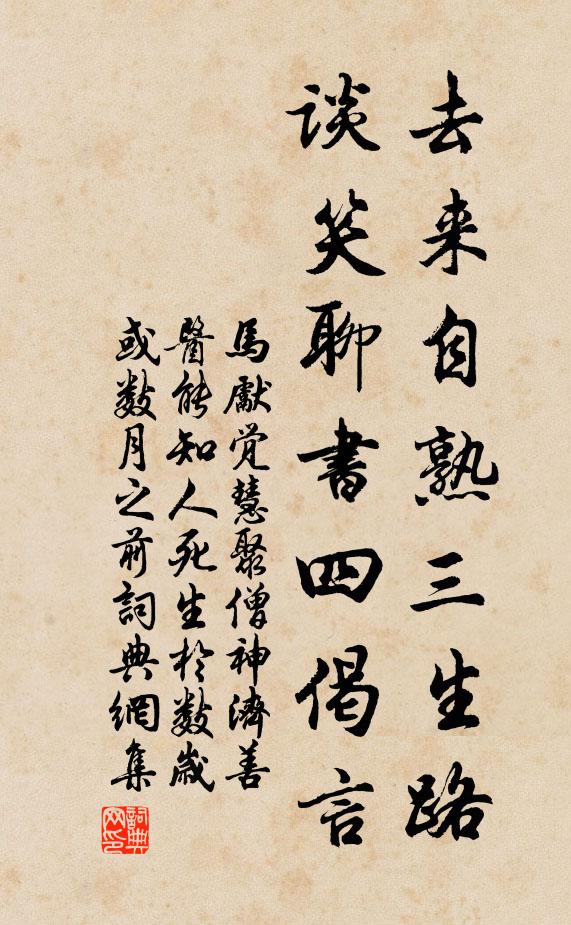 去来自熟三生路
谈笑聊書四偈言
馬獻觉慧聚僧神濟善
醫能知人死生於数歳
或数月之前詞典網集
詞典网印